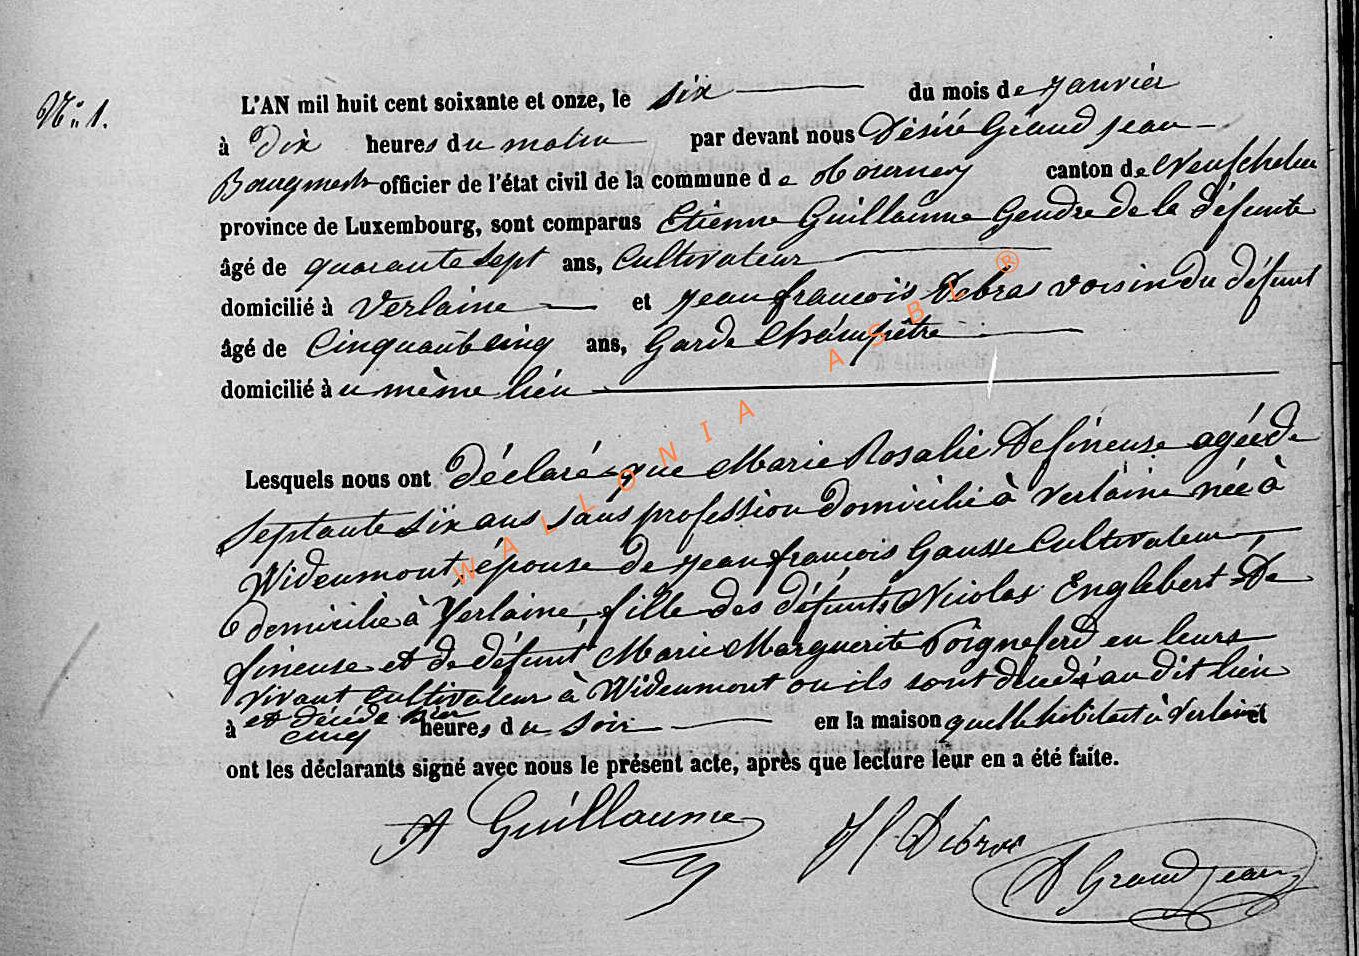 N° 1.
L'AN mil huit cent soixante et onze, le six du mois de janvier
à Dix heures du matin par devant nous Désiré Grand jean
Bourgmestre officier de l'état civil de la commune de Tournay canton de Neufchateau
province de Luxembourg, sont comparus Etienne Guillaume Gendre de la défunte
âgé de quarante sept ans, Cultivateur
domicilié à Verlaine et jean françois Debras voisin du défunt
âgé de Cinquante cinq ans, Garde Champêtre
domicilié à u même lieu
Lesquels nous ont déclaré que Marie Rosalie Defineuse agée de
Septante six ans sans profession domicilié à Verlaine née à
Wideumont, épouse de jean françois Gausse Cultivateur,
domicilié à Verlaine, fille des défunts Nicolas Englebert De
fineuse et de défunt Marie Marguerite Poigneferd en leurs
vivant cultivateur à Wideumont ou ils sont décédé au dit lieu
et décédé hier
à cinq heures du soir en la maison quelle habitait à Verlaine et
ont les déclarants signé avec nous le présent acte, après que lecture leur en a été faite.
Guillaume
Jf Debras
D Grandjean
WALLONIA ASBL ®